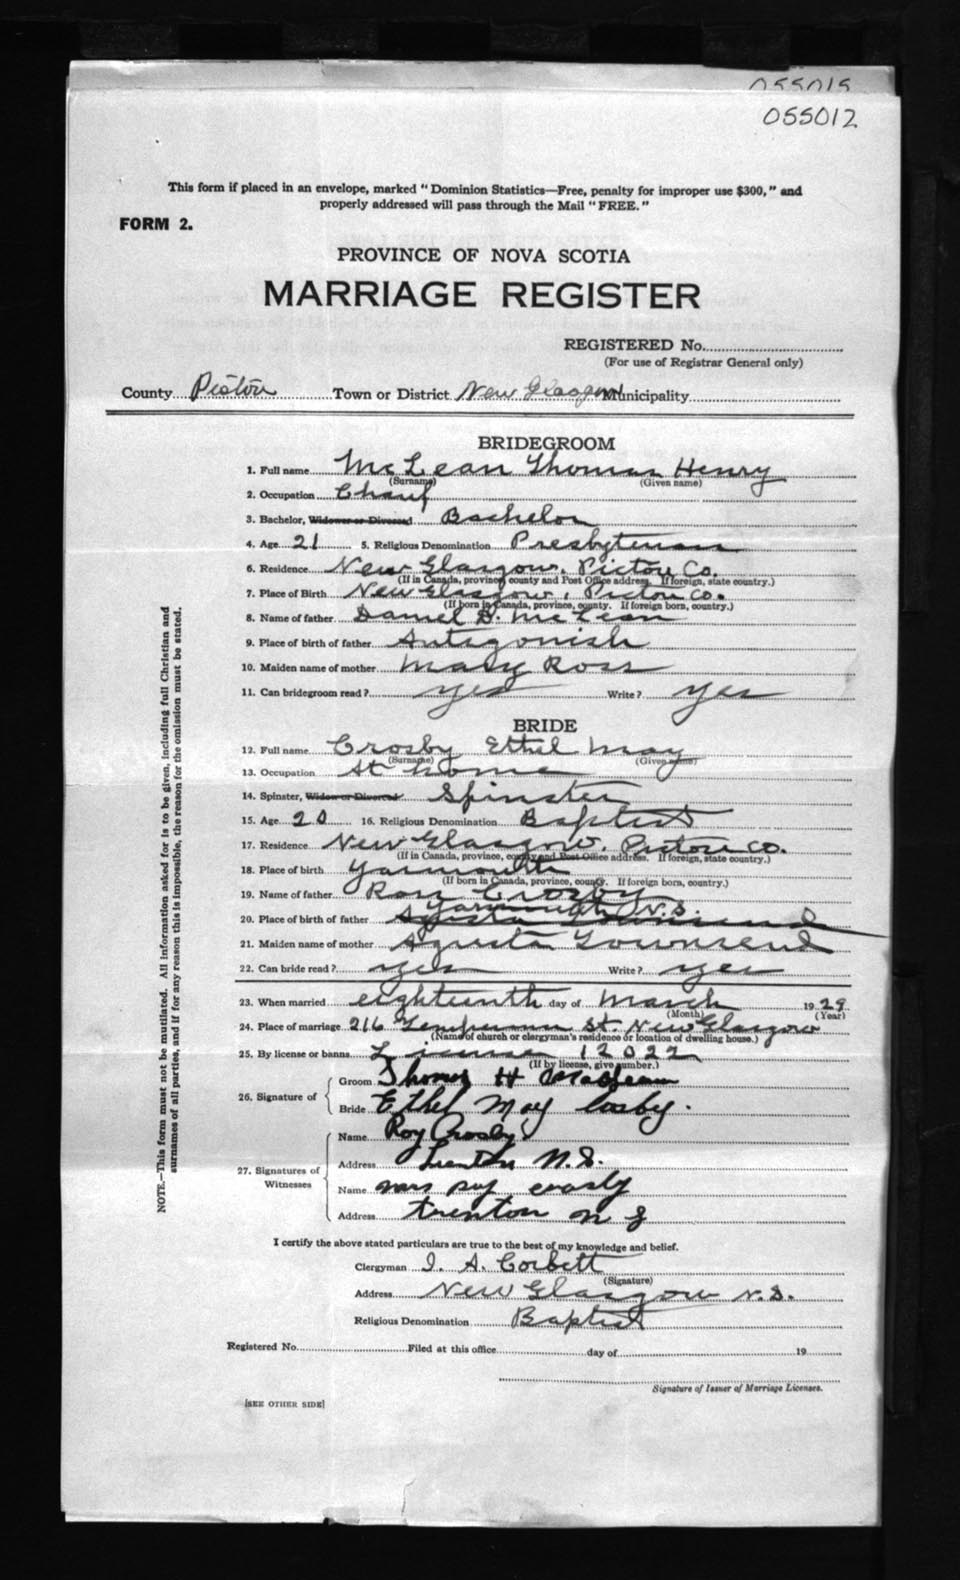 055015
055012
This form if placed in an envelope, marked "Dominion Statistics—Free, penalty for improper use $300," and
properly addressed will pass through the Mail "FREE."
FORM 2.
PROVINCE OF NOVA SCOTIA
MARRIAGE REGISTER
REGISTERED No.
(For use of Registrar General only)
County Pictou Town or District New Glasgow Municipality
BRIDEGROOM
1. Full name McLean Thomas Henry
(Surname) (Given name)
2. Occupation Chauf
3. Bachelor, Widower or Divorced Bachelor
4. Age 21 5. Religious Denomination Presbyterian
6. Residence New Glasgow, Pictou Co.
(If in Canada, province, county and Post Office address. If foreign, state country.)
7. Place of Birth New Glasgow, Pictou Co.
(If born in Canada, province, county. If foreign born, country.)
8. Name of father Daniel D. McLean
9. Place of birth of father Antigonish
10. Maiden name of mother Mary Ross
11. Can bridegroom read? yes Write? yes
BRIDE
12. Full name Crosby Ethel May
(Surname) (Given name)
13. Occupation At home
14. Spinster, Widow or Divorced Spinster
15. Age 20 16. Religious Denomination Baptist
17. Residence New Glasgow, Pictou Co.
(If in Canada, province, county and Post Office address. If foreign, state country.)
18. Place of birth Yarmouth
(If born in Canada, province, county. If foreign born, country.)
19. Name of father Roy Crosby
Yarmouth N.S.
20. Place of birth of father Agusta Townsend
21. Maiden name of mother Agusta Townsend
22. Can bride read? yes Write? yes
23. When married eighteenth day of March 1929
(Month) (Year)
24. Place of marriage 216 St. New Glasgow
(Name of church or clergyman's residence or location of dwelling house.)
25. By license or banns License 12022
(If by license, give number.)
26. Signature of Groom Thomas H MacLean
Bride Ethel May Cosby.
27. Signatures of Witnesses Name Roy Crosby
Address Trenton N.S.
Name Mrs Roy Crosby
Address Trenton N S
I certify the above stated particulars are true to the best of my knowledge and belief.
Clergyman I. A. Corbett
(Signature)
Address New Glasgow N.S.
Religious Denomination Baptist
Registered No. Filed at this office day of 19
Signature of Issuer of Marriage Licenses.
[SEE OTHER SIDE]
NOTE.—This form must not be mutilated. All information asked for is to be given, including full Christian and
surnames of all parties, and if for any reason this is impossible, the reason for the omission must be stated.